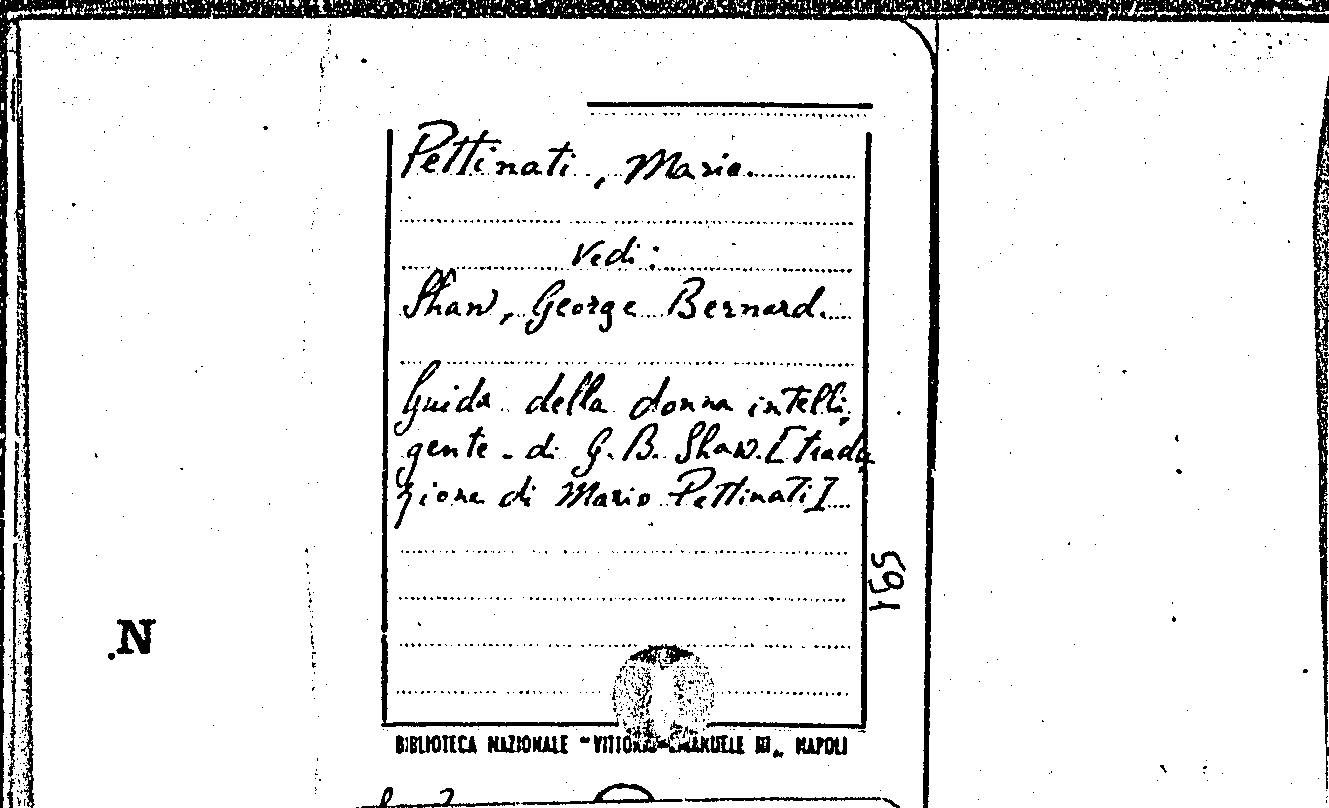 Pettinati, Mario.
Vedi:
Shaw, George Bernard.
Guida della donna intelli,
gente - di G. B. Shaw. [tradu
zione di Mario Pettinati]
165
N
BIBLIOTECA NAZIONALE "VITTORIO EMANUELE III„ NAPOLI